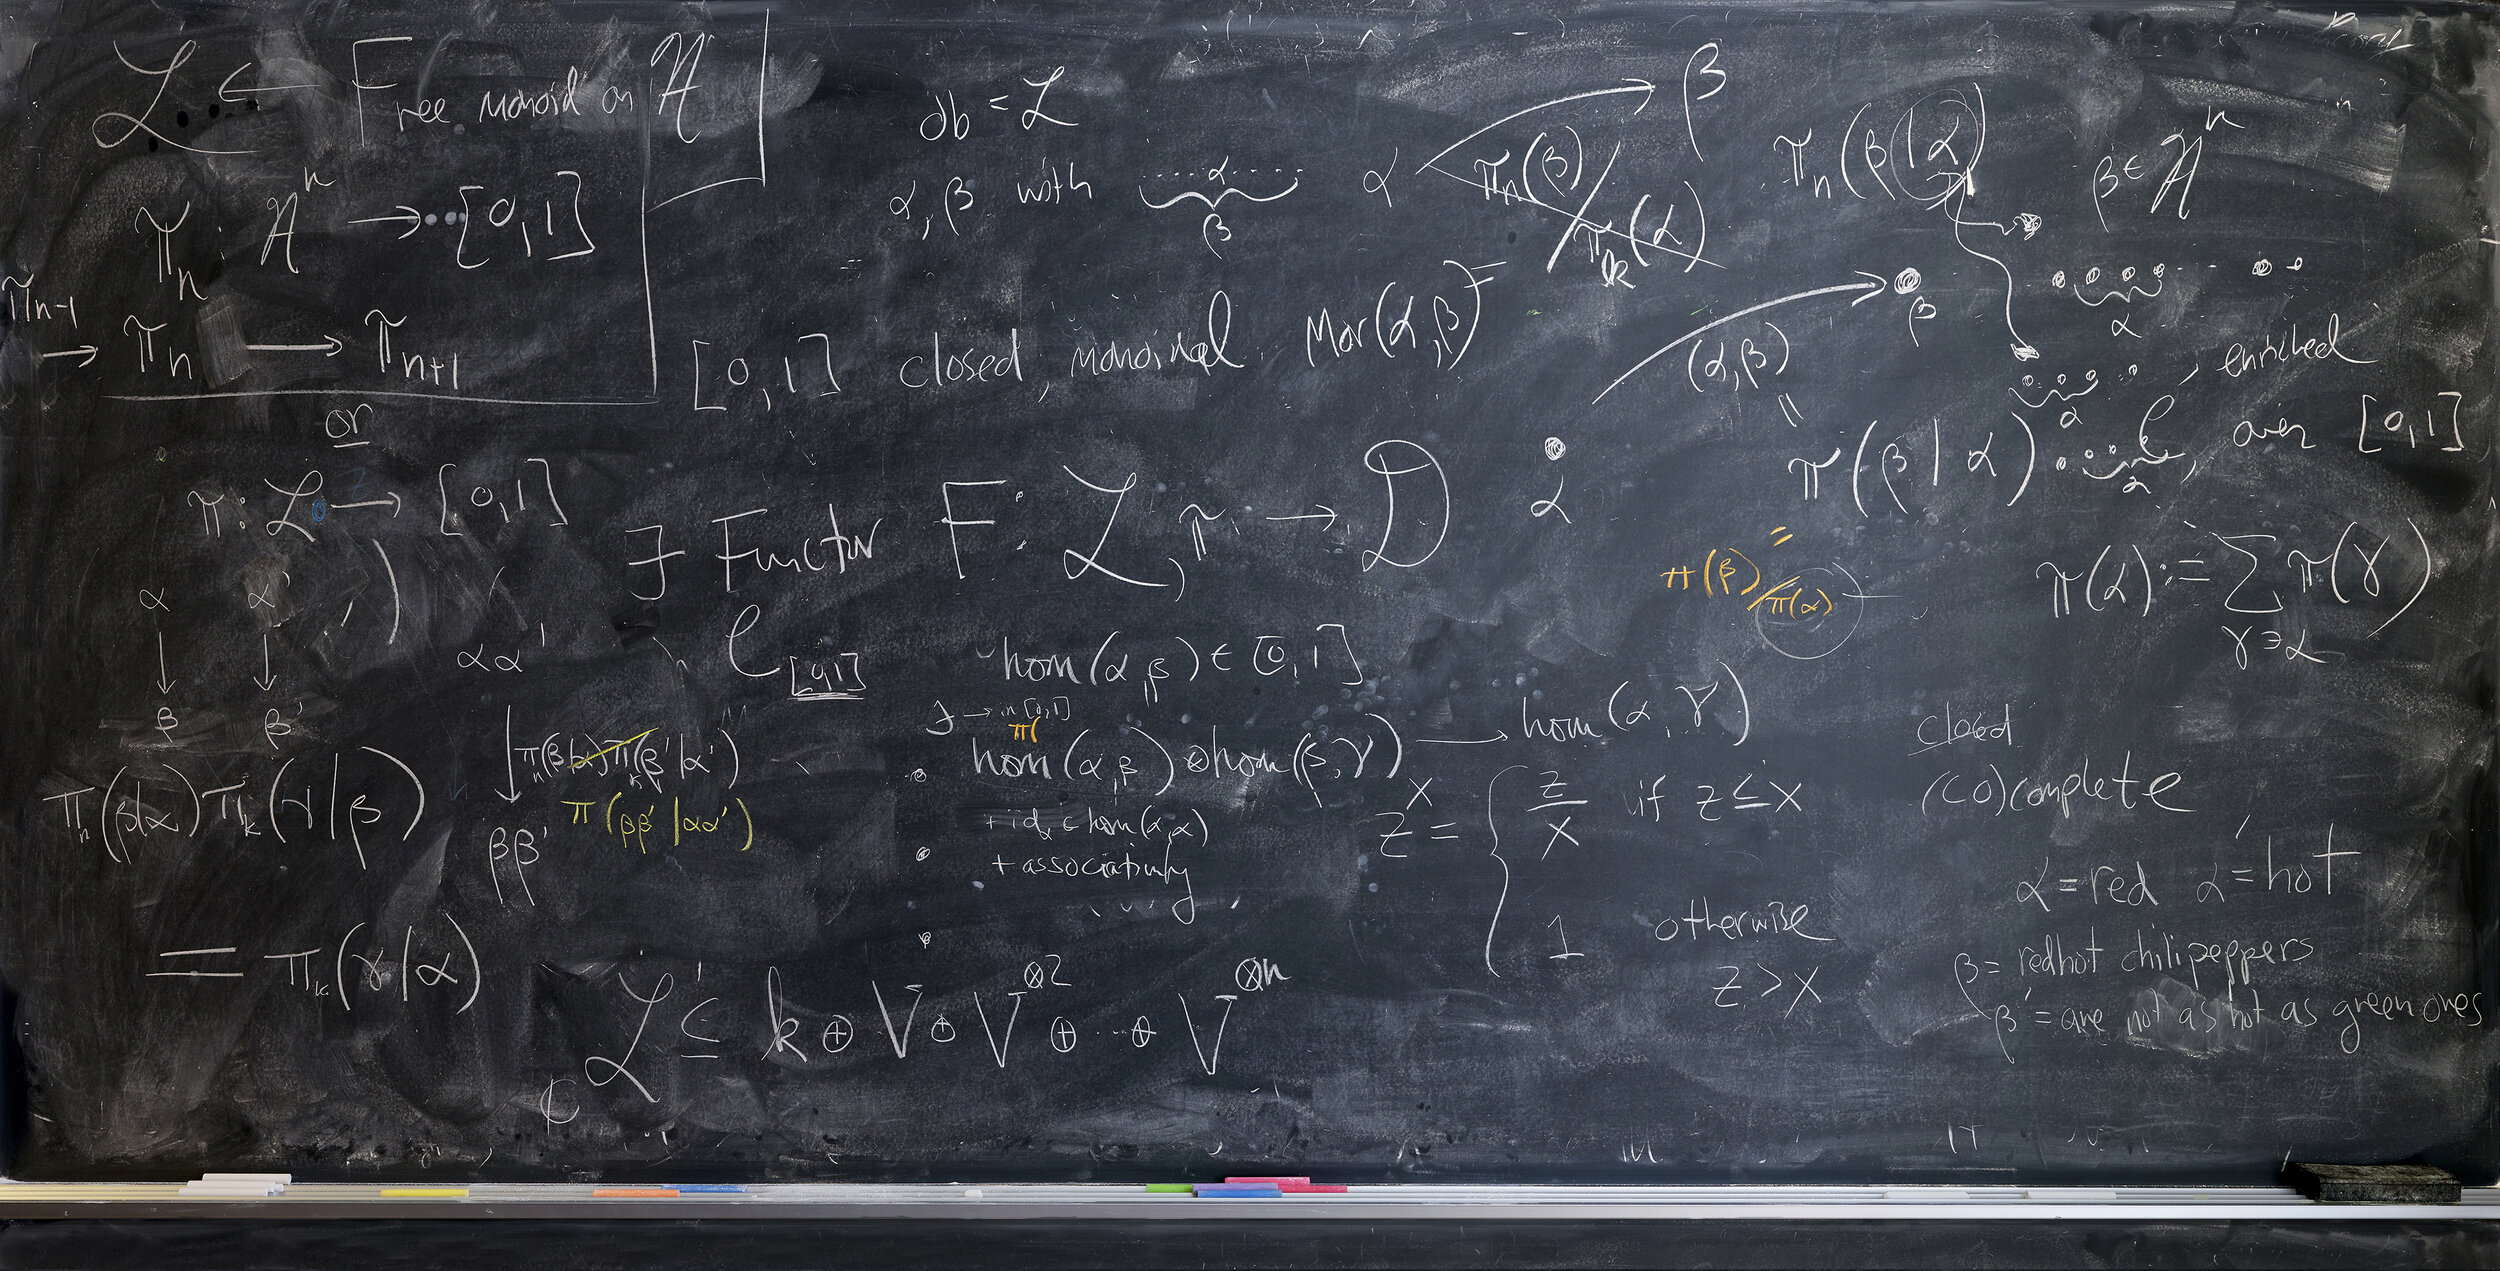 ℒ ⊂ Free monoid on 𝒜
πₙ : 𝒜ⁿ → [0,1]
πₙ₋₁ → πₙ → πₙ₊₁
or
π : ℒ → [0,1]
α α'
↓ ↓
β β'
αα'
↓ πₙ(β|α) πₖ(β'|α')
π(ββ'|αα')
ββ'
πₙ(β|α) πₖ(γ|β)
= πₖ(γ|α)
ob = ℒ
α, β with α
β
α → β
πₙ(β)/πₖ(α)
πₙ(β|α) β ∈ 𝒜ⁿ
α
α
α
[0,1] closed, monoidal Mor(α,β) =
(α,β)
=
π(β|α)
α β
𝒞, enriched
over [0,1]
∃ Functor F : ℒ, π → 𝒟
= π(β)/π(α)
π(α) := Σ π(γ)
γ∋α
𝒞 [0,1]
hom(α,β) ∈ [0,1]
∃ → in [0,1]
π(
hom(α,β) ⊗ hom(β,γ) → hom(α,γ)
+ id_α ∈ hom(α,α)
+ associativity
zˣ = { z/x if z ≤ x
1 otherwise
z > x
closed
(co)complete
α = red α' = hot
β = redhot chilipeppers
β' = are not as hot as green ones
ℒ' ⊆ k ⊕ V ⊕ V^⊗2 ⊕ ... ⊕ V^⊗n
₵